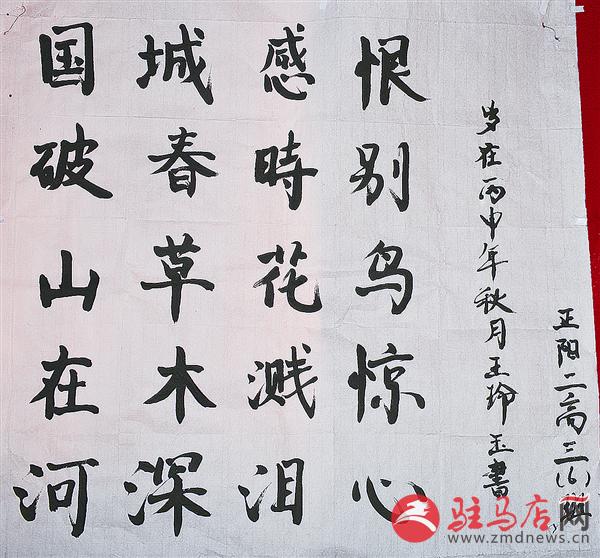 国破山在河
城春草木深
感時花溅泪
恨别鸟惊心
岁在丙申年秋月王玲玉書
正阳二高三(6)
驻马店网
www.zmdnews.cn